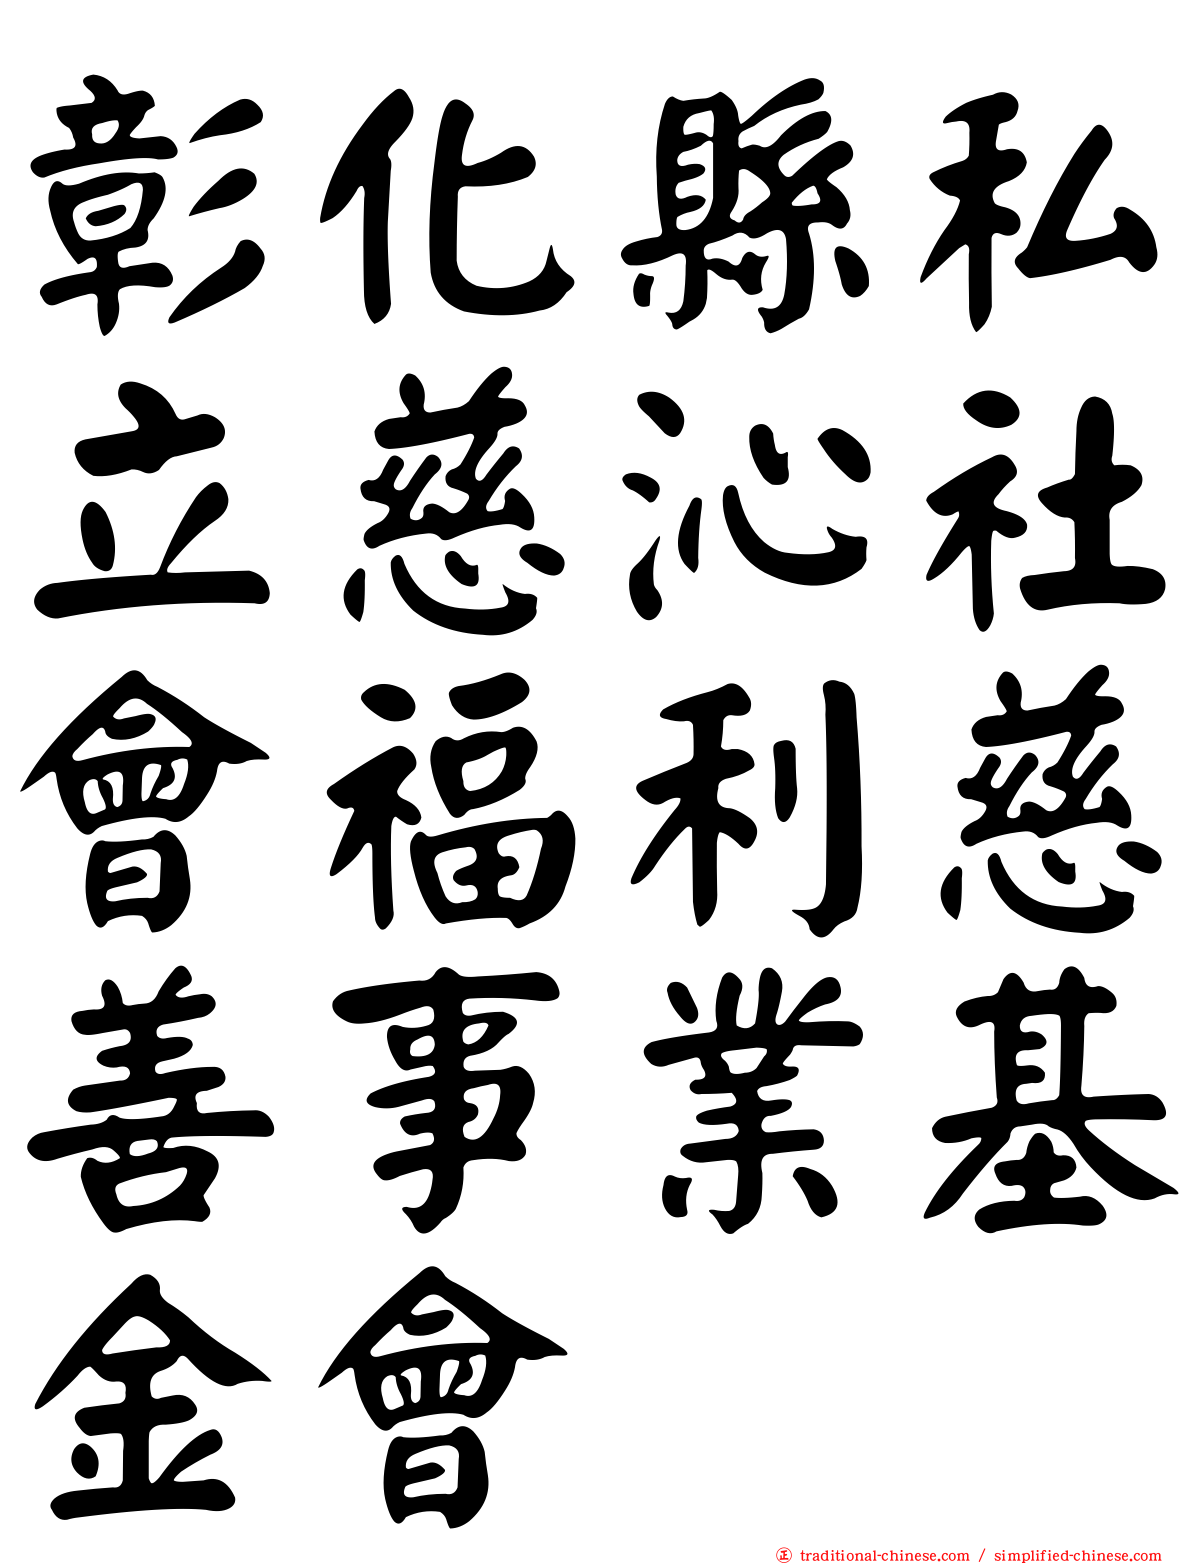 彰化縣私
立慈沁社
會福利慈
善事業基
金會
正 traditional-chinese.com / simplified-chinese.com